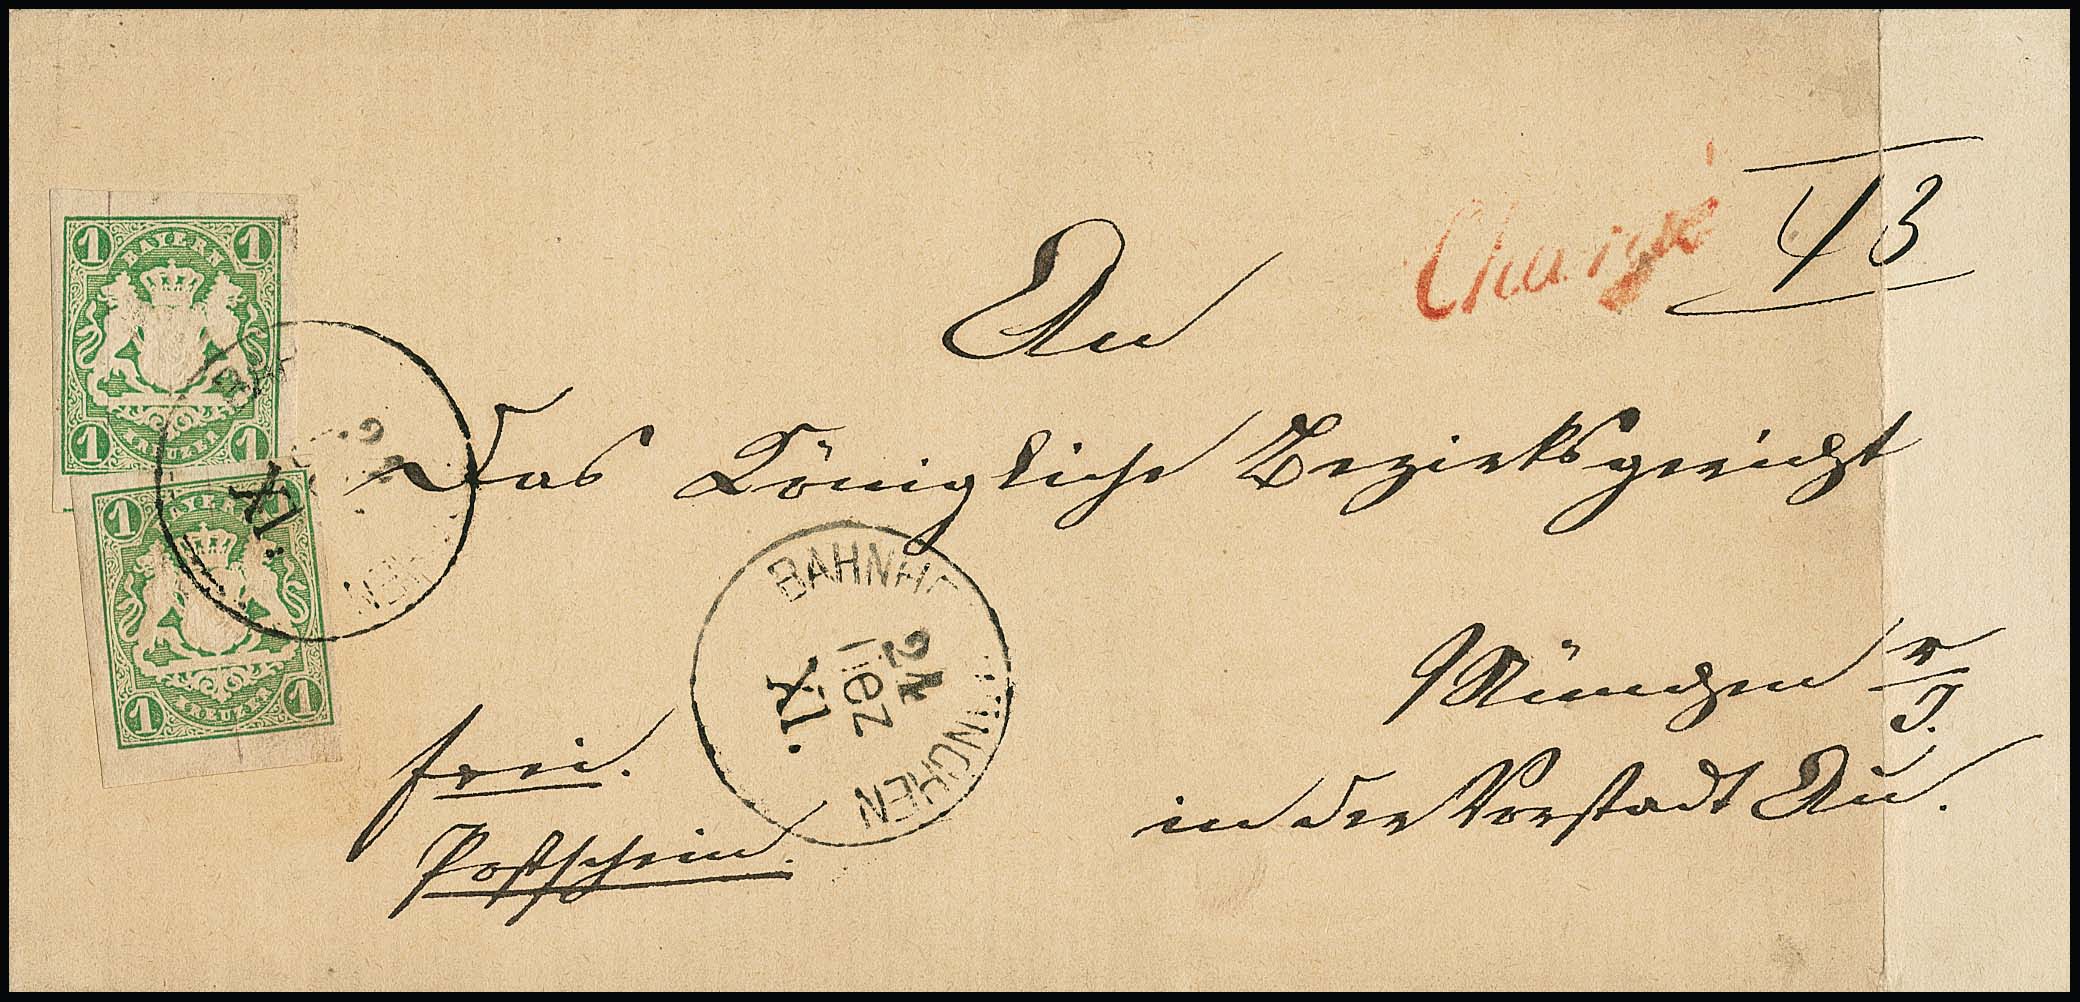 Chargé
43
An
Das Königliche Bezirksgericht
München r/J.
in der Vorstadt Au.
frei.
Postschein.
1 1
BAYERN
1 1
KREUZER
1 1
BAYERN
1 1
KREUZER
24
IX.
BAHNHOF MÜNCHEN
24
DEZ
IX.